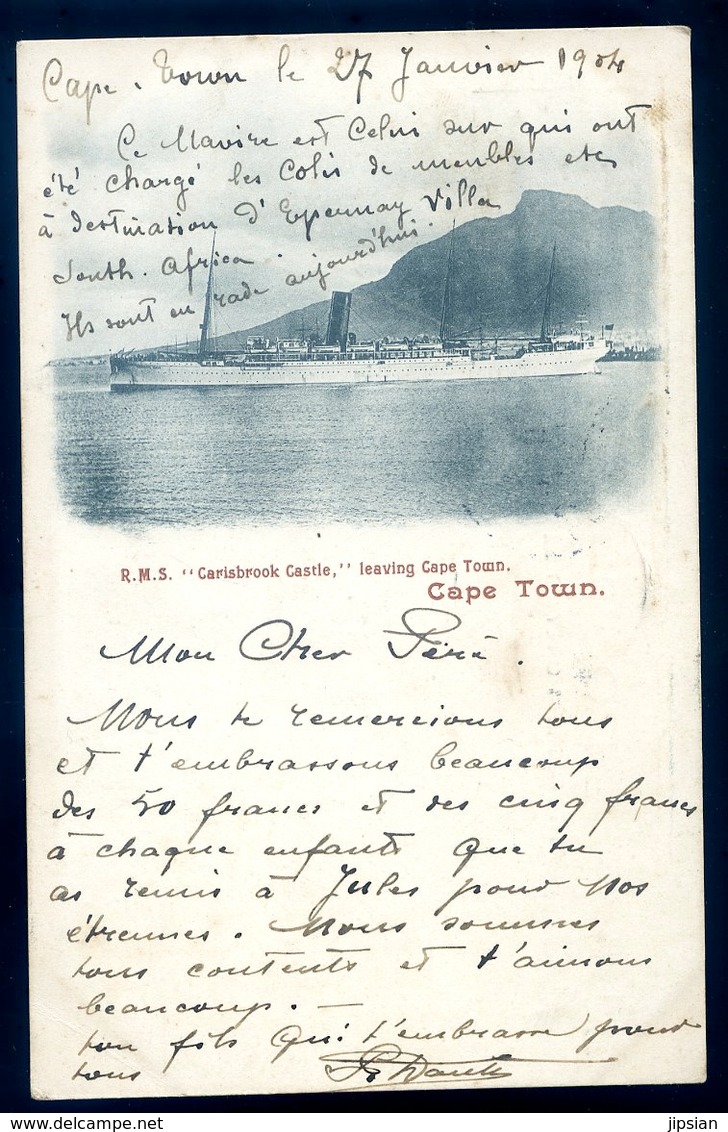 Cape. Town le 27 Janvier 1904
Ce Navire est Celui sur qui ont
été chargé les Colis de meubles etc
à destination d'Epernay Villa
South. Africa.
Ils sont en rade aujourd'hui.
R.M.S. "Carisbrook Castle," leaving Cape Town.
Cape Town.
Mon Cher Péré.
Nous te remercions tous
et t'embrassons beaucoup
des 50 francs et des cinq francs
à chaque enfants que tu
as remis à Jules pour nos
étrennes. Nous sommes
tous contents et t'aimons
beaucoup. —
ton fils qui t'embrasse pour
tous
jipsian
www.delcampe.net